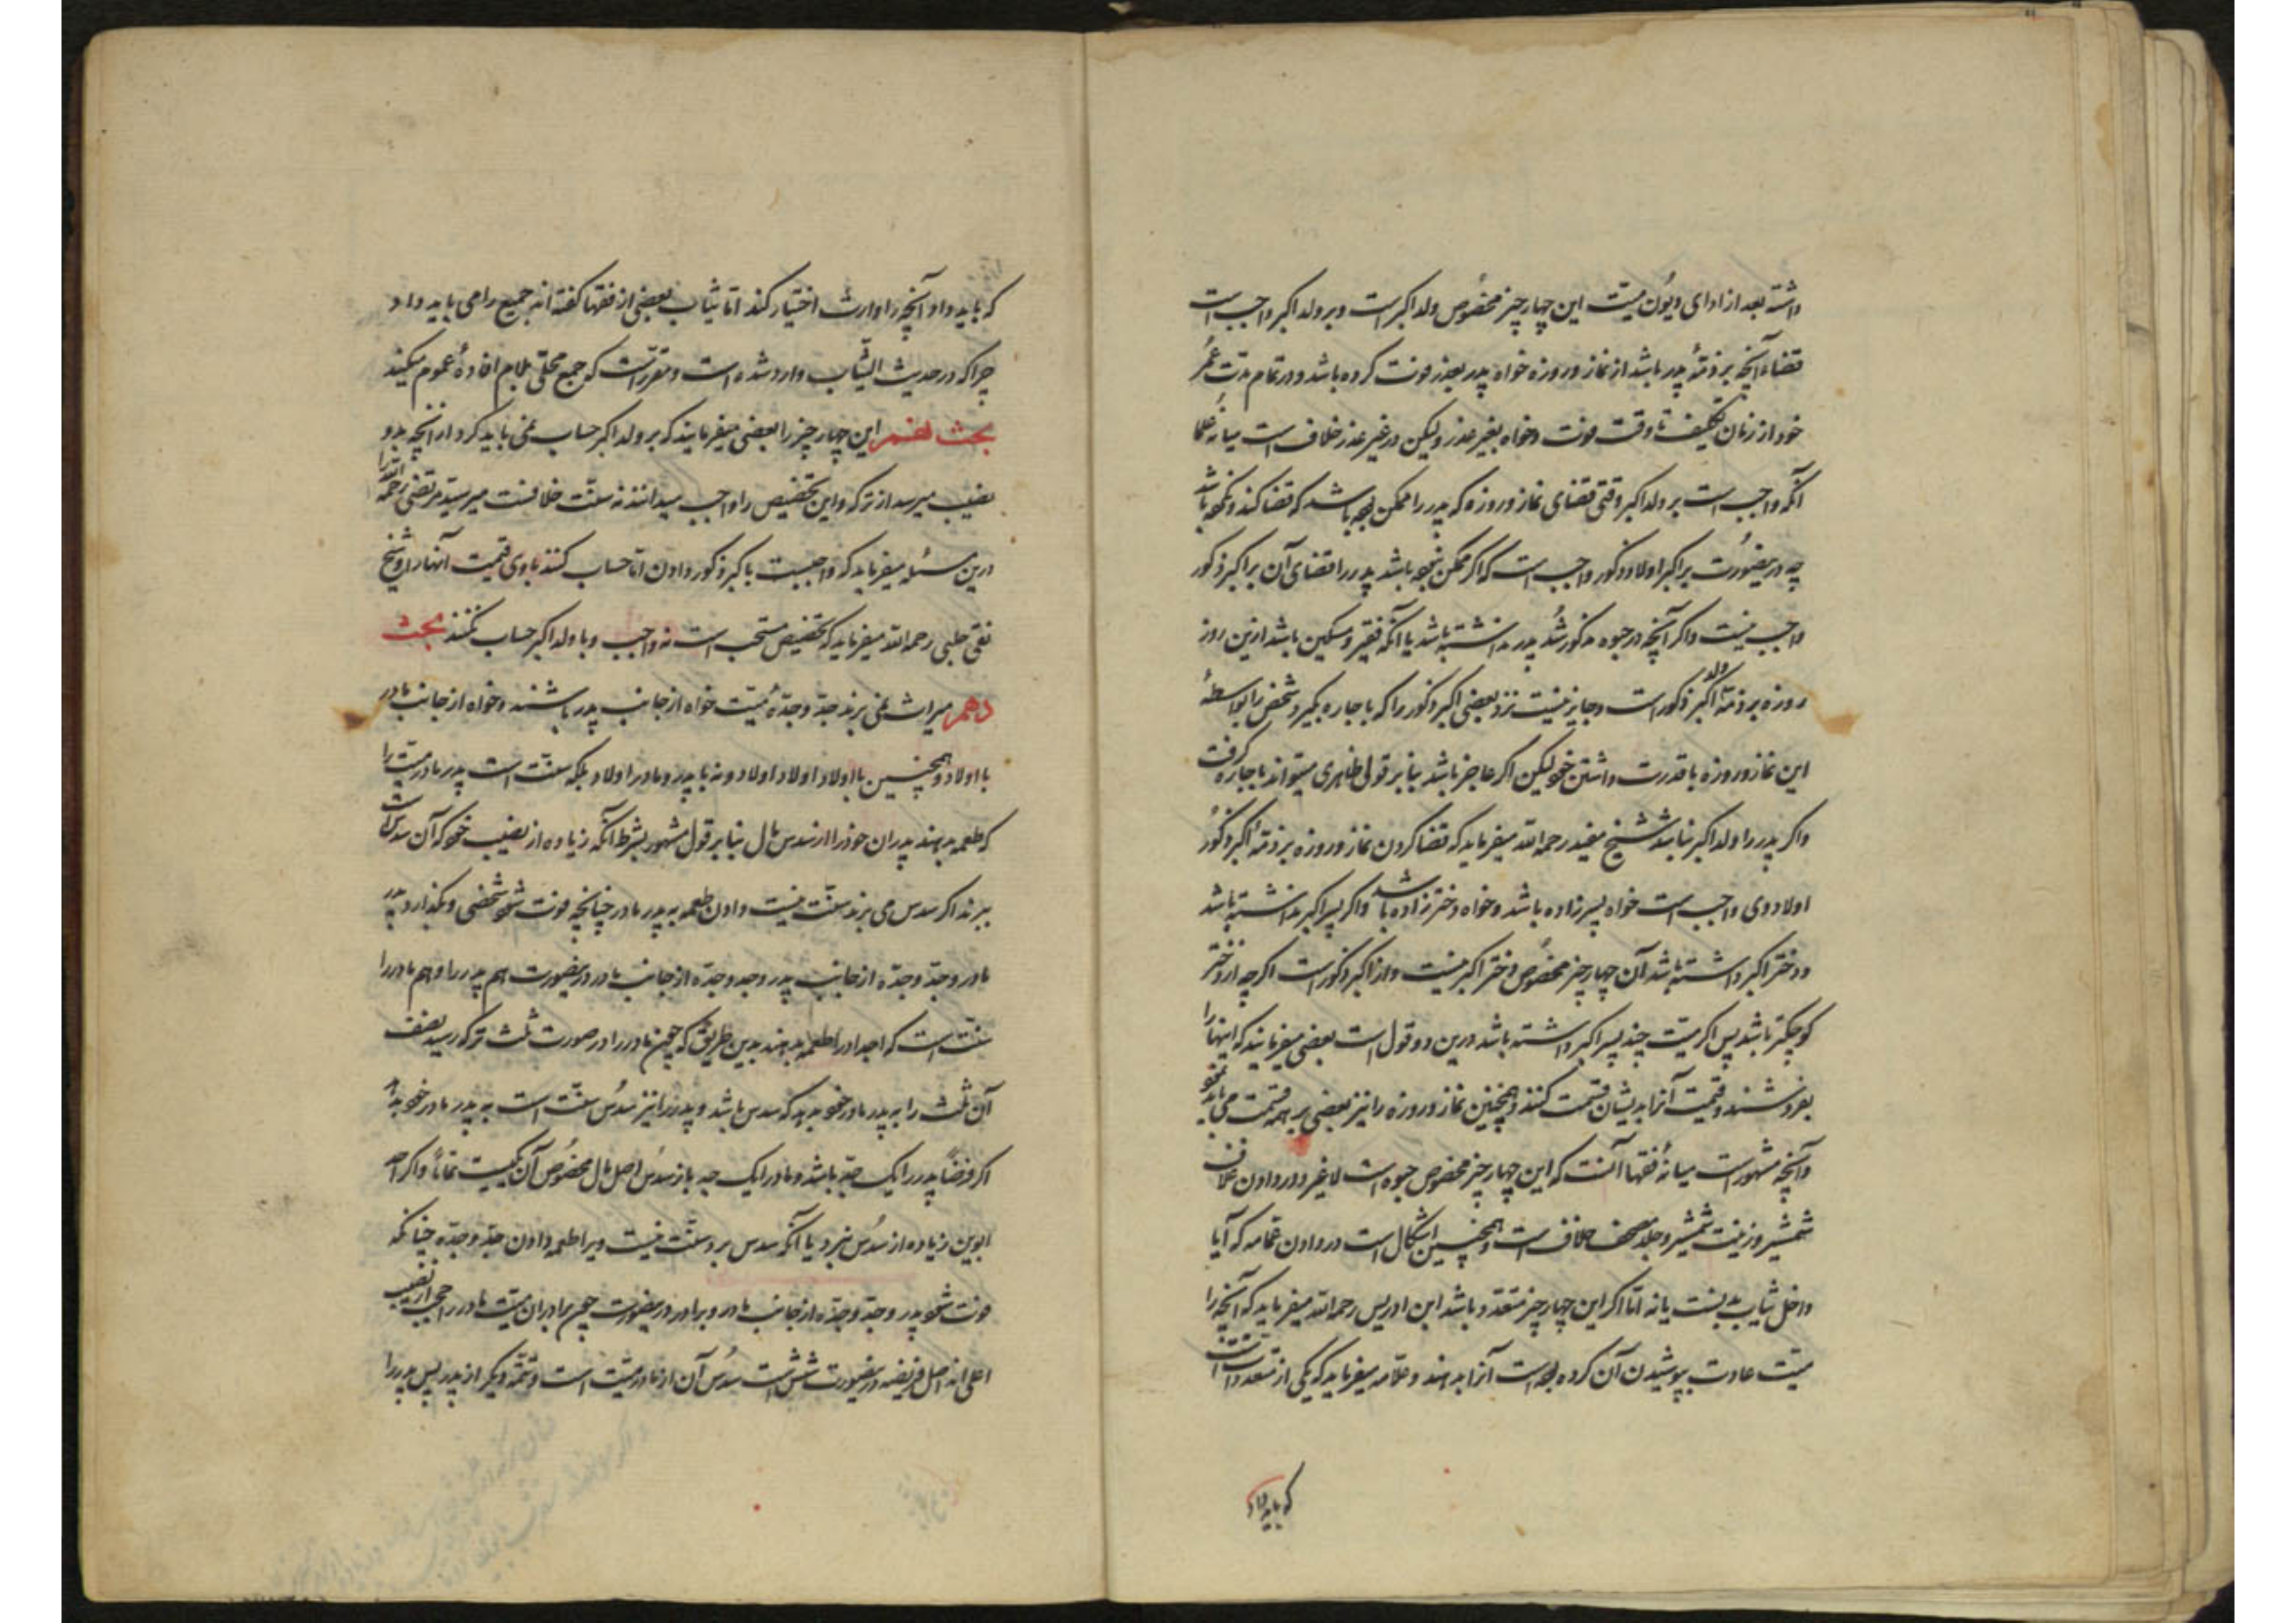 داشته بعد از ادای دیون میّت این چهار چیز مخصُوص ولد اکبر است و بر ولد اکبر واجب است
قضاء آنچه بر ذمّهٔ پدر باشد از نماز و روزه خواه پدر بعذر فوت کرده باشد و در تمام مدّت عمُر
خود از زمان تکلیف تا وقت فوت و خواه بغیر عذر ولیکن در غیر عذر خلاف است میانهٔ علما
آنکه واجب است بر ولد اکبر وقتی قضای نماز و روزه که پدر را ممکن بوده باشد که قضا کند و نکرده باشد
چه درینصُورت بر اکبر اولاد ذکور واجب است که اگر ممکن نبوده باشد پدر را قضای آن بر اکبر ذکور
واجب نیست و اگر آنچه در حبوه مذکور شُد پدر نداشته باشد یا آنکه فقیر و مسکین باشد ازین روز
روزه بر ذمّهٔ ولد اکبر ذکور است و جایز نیست نزد بعضی اکبر ذکور را که باجاره بگیرد شخصی را بواسطهٔ
این نماز و روزه با قدرت داشتن خود لیکن اگر عاجز باشد بنابر قولی ظاهری میتواند باجاره گرفت
و اگر پدر را ولد اکبر نباشد شیخ مفید رحمه الله میفرماید که قضا کردن نماز و روزه بر ذمّهٔ اکبر ذکُور
اولاد وی واجب است خواه پسرزاده باشد و خواه دخترزاده باشد و اگر پسر اکبر نداشته باشد
و دختر اکبر داشته باشد آن چهار چیز مخصُوص دختر اکبر نیست و از اکبر ذکور است اگر چه از دختر
کوچکتر باشد پس اگر میّت چند پسر اکبر داشته باشد درین دو قول است بعضی میفرمایند که اینها را
بفروشند و قیمت آنرا بدیشان قسمت کنند و همچنین نماز و روزه را نیز بعضی بر همه قسمت می باید نمود
و آنچه مشهور است میانهٔ فقها آنست که این چهار چیز مخصوص حبوه است لا غیر و در دادن غلاف
شمشیر و زینت شمشیر و جلد مصحف خلاف است و همچنین اشکال است در دادن عمّامه که آیا
داخل ثیاب بدنست یا نه امّا اگر این چهار چیز متعدّد باشد ابن ادریس رحمه الله میفرماید که آنچه را
میّت عادت بپوشیدن آن کرده بوده است آنرا بدهند و علّامه میفرماید که یکی از متعدد است
که باید داد
که باید داد و آنچه را وارث اختیار کند امّا ثیاب بعضی از فقها گفته اند جمیع را می باید داد
چرا که در حدیث الثّیاب وارد شده است و مقرّر است که جمع محلّی بلام افادهٔ عموم میکند
بحث نهم این چهار چیز را بعضی میفرمایند که بر ولد اکبر حساب نمی باید کرد از آنچه بدو
نصیب میرسد از ترکه و این تخصیص را واجب میدانند نه سنّت خلافست میر سیّد مرتضی رحمه الله را
درین مسئله میفرماید که واجبست باکبر ذکور دادن امّا حساب کنند باوی قیمت آنها را و شیخ
تقی حلبی رحمه الله میفرماید که تخصیص مستحب است نه واجب و با ولد اکبر حساب نکنند بحث
دهم میراث نمی برند جدّ و جدّهٔ میّت خواه از جانب پدر باشند و خواه از جانب مادر
با اولاد و همچنین با اولاد اولاد اولاد و نه با پدر و مادر اولاد بلکه سنّت است پدر مادر میّت را
که طعمه بدهند پدران خود را از سدس مال بنابر قول مشهور بشرط آنکه زیاده از نصیب خود که آن سدس است
ببرند اگر سدس می برند سنّت نیست دادن طعمه به پدر مادر چنانچه فوت شود شخصی و بگذارد پدر
مادر و جدّ و جدّه از جانب پدر و جد و جدّه از جانب مادر درینصورت هم پدر را و هم مادر را
سنّت است که اجداد را طعمه بدهند بدین طریق که چون مادر را در صورت ثلث ترکه رسید نصف
آن ثلث را به پدر مادر خود بدهد که سدس باشد و پدر را نیز سدُس سنّت است به پدر مادر خود بدهد
اگر فرضاً پدر را یک جدّ باشد و مادر را یک جد باز سدُس اصل مال مخصُوص آن یکیست تماماً و اگر احد
ابوین زیاده از سُدس نبرد یا آنکه سدس برد سنّت نیست ویرا طعمه دادن جدّ و جدّه چنانکه
فوت شود پدر و جدّ و جدّه از جانب مادر و برادر درینصورت چون برادران میّت مادر را حجب از نصیب
اعلی اند اصل فریضه درینصورت شش است سدُس آن از مادر میّت است و تتمّه دیگر از پدر پس پدر را